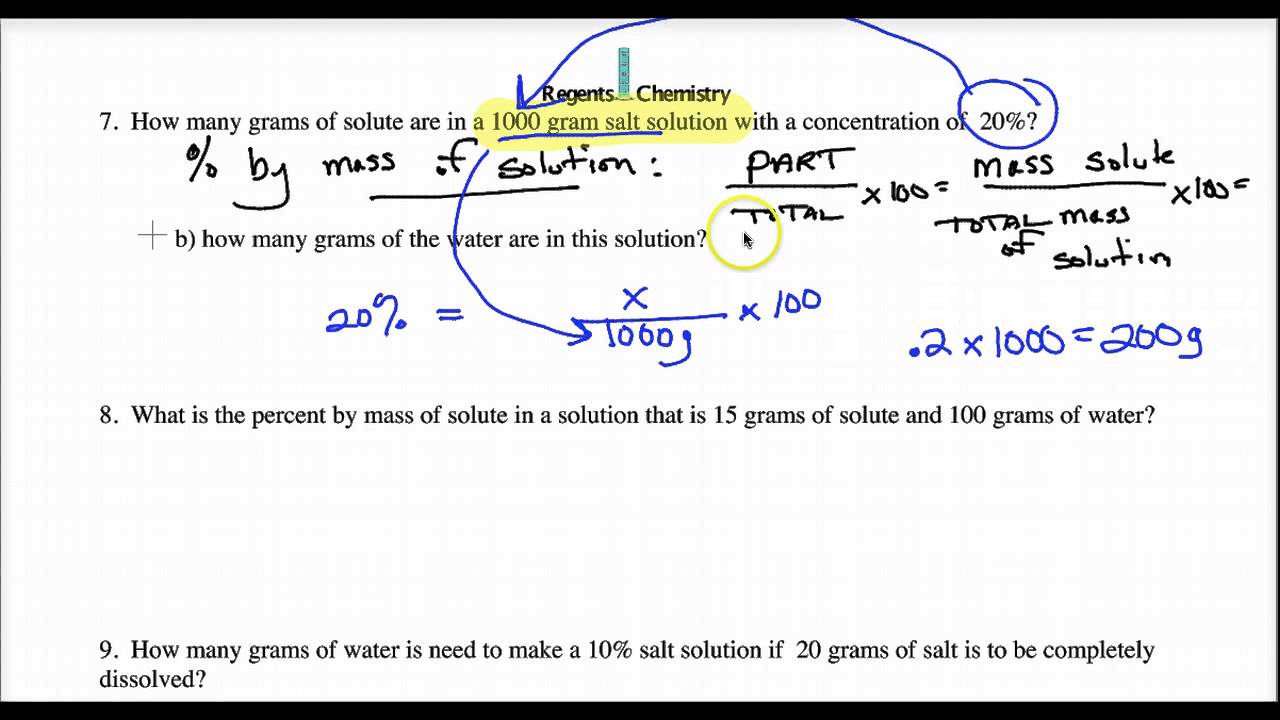 Regents Chemistry
7. How many grams of solute are in a 1000 gram salt solution with a concentration of 20%?
% by mass of solution: PART / TOTAL x 100 = mass solute / TOTAL mass of solution x 100 =
b) how many grams of the water are in this solution?
20% = x / 1000g x 100
.2 x 1000 = 200g
8. What is the percent by mass of solute in a solution that is 15 grams of solute and 100 grams of water?
9. How many grams of water is need to make a 10% salt solution if 20 grams of salt is to be completely
dissolved?